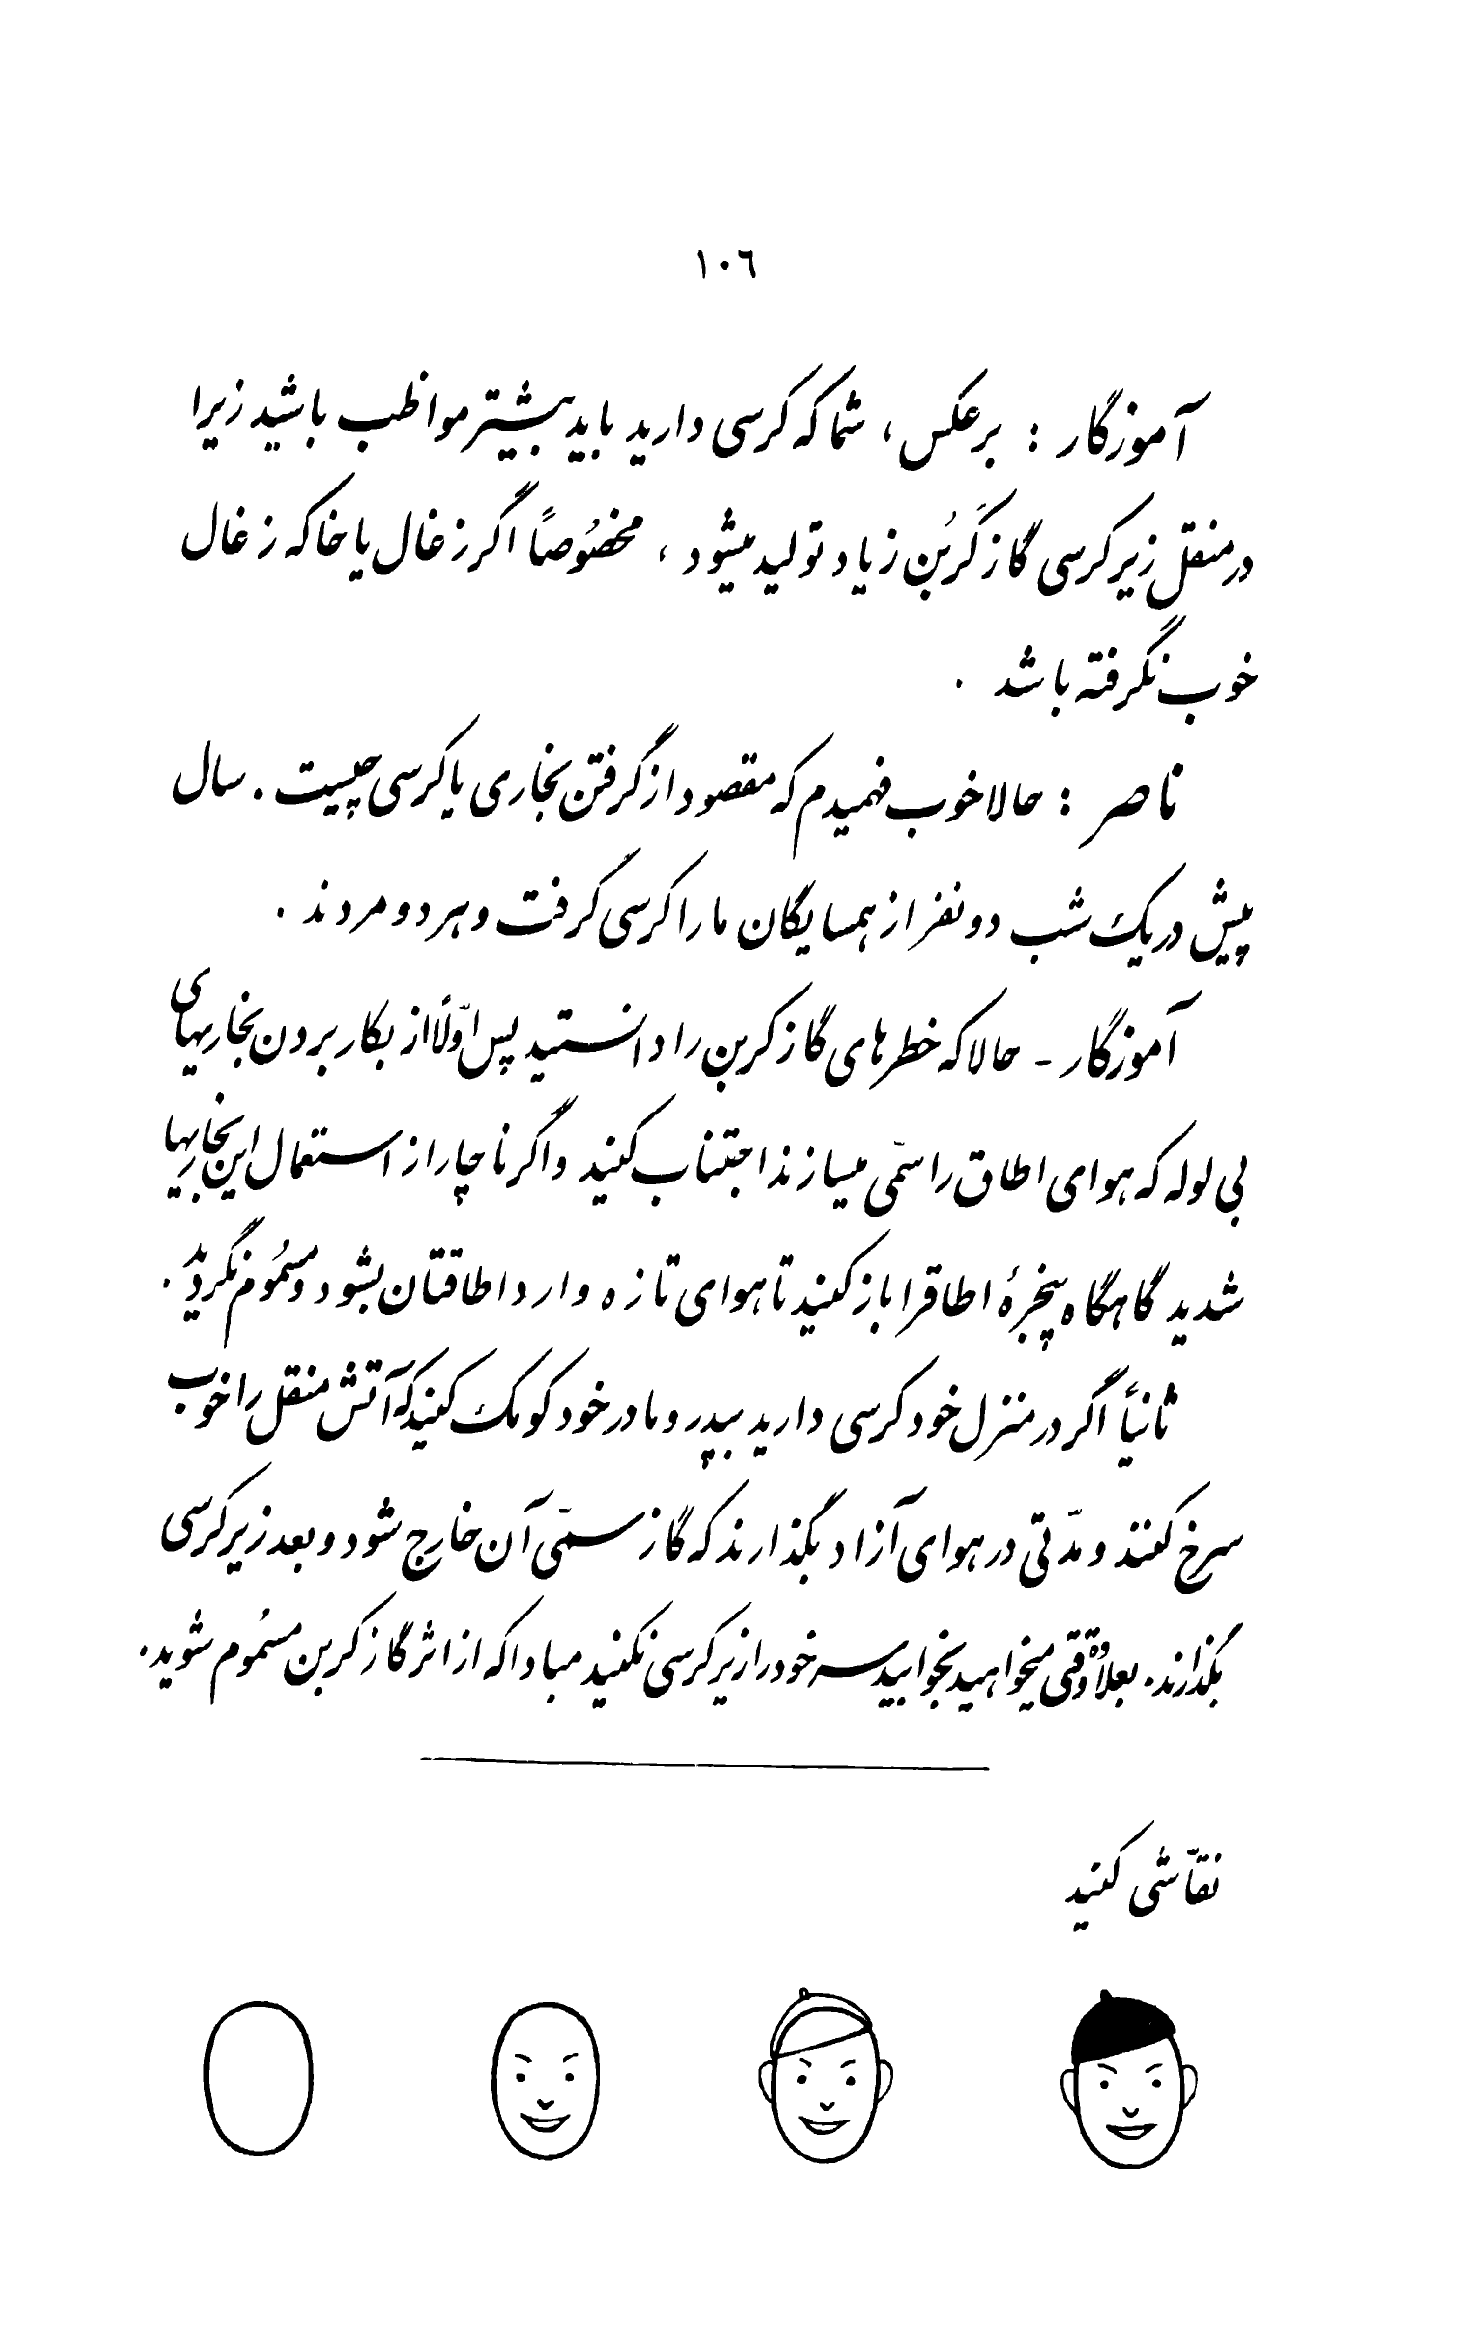 ١٠٦
آموزگار : برعکس ، شما که کرسی دارید باید بیشتر مواظب باشید زیرا
در منقل زیر کرسی گاز کَربُن زیاد تولید میشود ، مخصُوصاً اگر زغال یا خاکه زغال
خوب نگرفته باشد .
ناصر : حالا خوب فهمیدم که مقصود از گرفتن بخاری یا کرسی چیست . سال
پیش در یک شب دو نفر از همسایگان ما را کرسی گرفت و هر دو مردند .
آموزگار - حالا که خطرهای گاز کربن را دانستید پس اوّلاً از بکار بردن بخاریهای
بی لوله که هوای اطاق را سمّی میسازند اجتناب کنید و اگر ناچار از استعمال این بخاریها
شدید گاهگاه پنجرهٔ اطاقرا باز کنید تا هوای تازه وارد اطاقتان بشود و مسمُوم نگردید .
ثانیاً اگر در منزل خود کرسی دارید بپدر و مادر خود کومک کنید که آتش منقل را خوب
سرخ کنند و مدّتی در هوای آزاد بگذارند که گاز سمّی آن خارج شود و بعد زیر کرسی
بگذارند . بعلاوه وقتی میخواهید بخوابید سر خود را زیر کرسی نکنید مبادا که از اثر گاز کربن مسمُوم شوید .
نقّاشی کنید